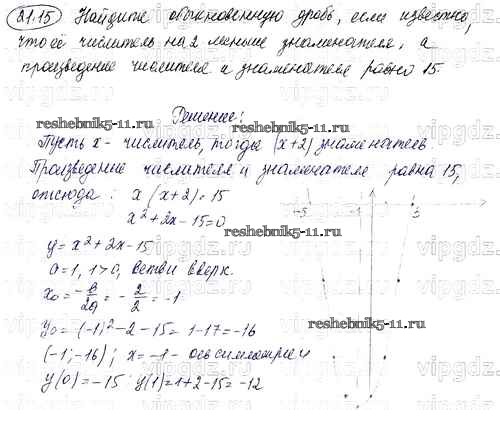 21.15 Найдите обыкновенную дробь, если известно,
что её числитель на 2 меньше знаменателя, а
произведение числителя и знаменателя равно 15.
Решение:
reshebnik5-11.ru
reshebnik5-11.ru
Пусть x - числитель, тогда (x+2) знаменатель
Произведение числителя и знаменателя равна 15,
отсюда: x(x+2)=15
x²+2x-15=0
-5 -1 3
reshebnik5-11.ru
y=x²+2x-15
a=1, 1>0, ветви вверх
x₀=-в/2a=-2/2=-1
y₀=(-1)²-2-15=1-17=-16
reshebnik5-11.ru
(-1;-16); x=-1- ось симметрии
y(0)=-15 y(1)=1+2-15=-12